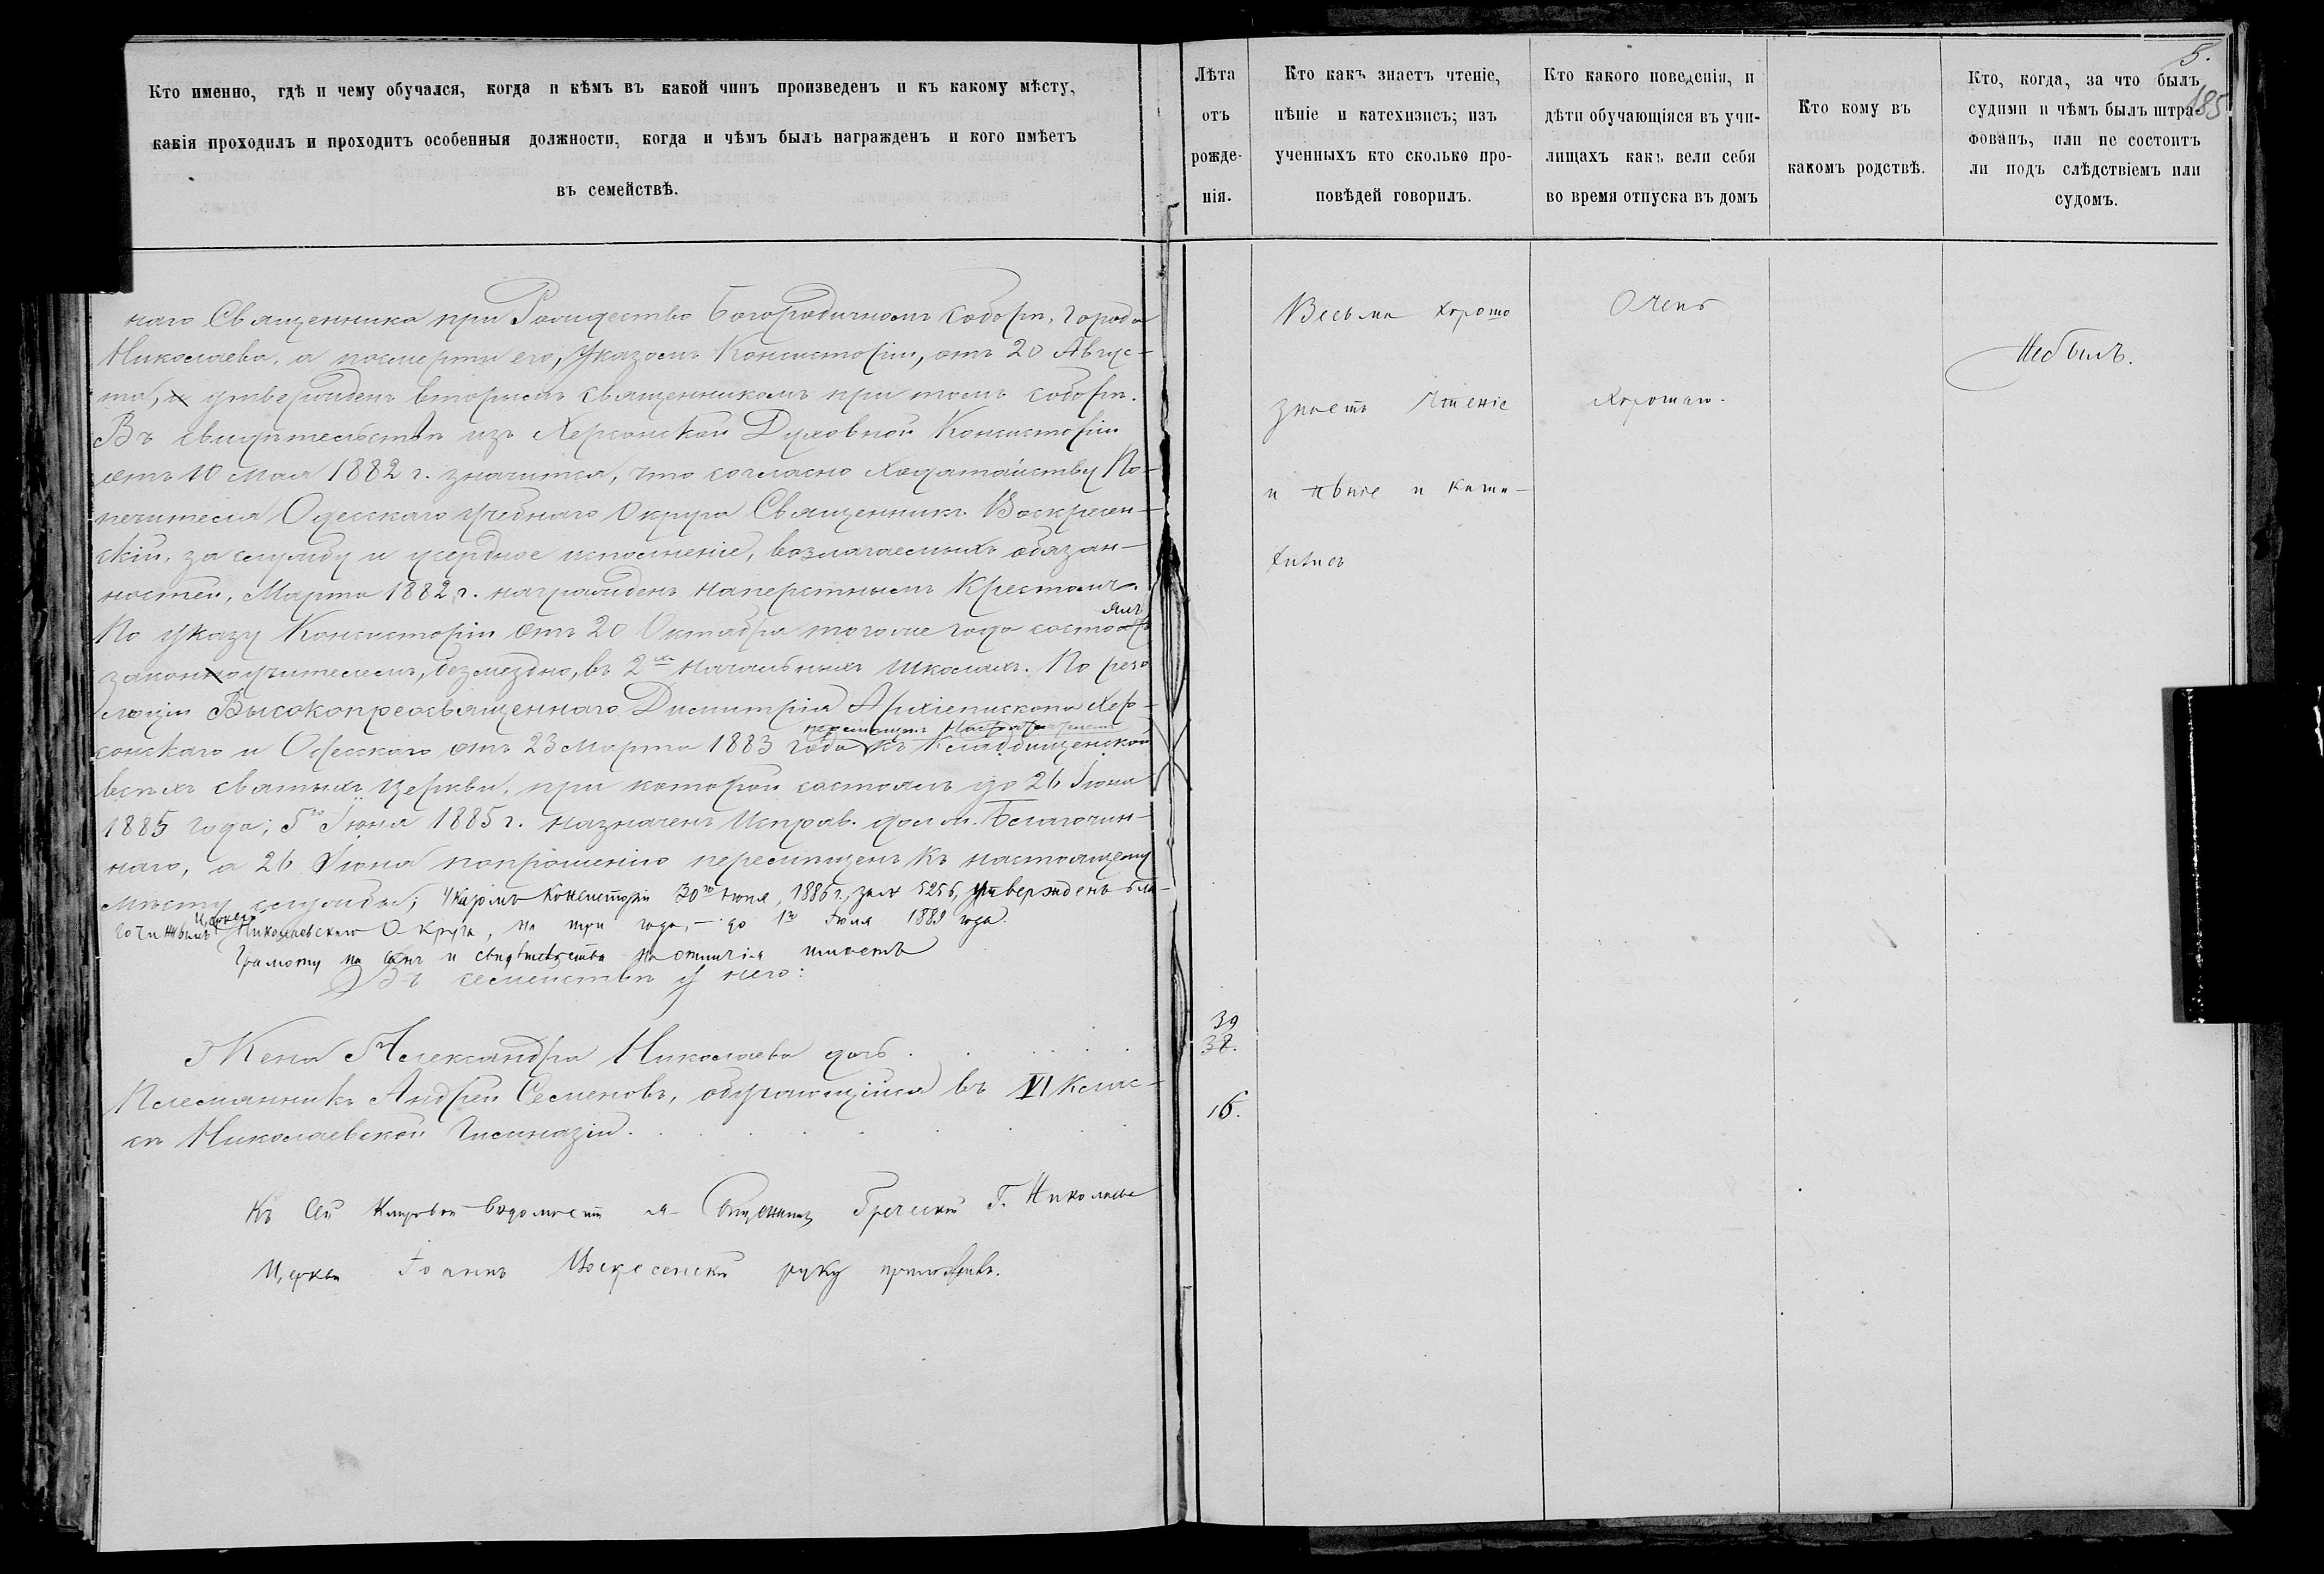 Кто именно, гдѣ и чему обучался, когда и кѣмъ въ какой чинъ произведенъ и къ какому мѣсту,
какія проходилъ и проходитъ особенныя должности, когда и чѣмъ былъ награжденъ и кого имѣетъ
въ семействѣ.
наго Священника при Рождество Богородичномъ Соборѣ, города
Николаева, а посмерти его, Указомъ Консисторіи, отъ 20 Авгус-
та, утвержденъ вторымъ священникомъ при томъ соборѣ.
Въ свидѣтельствѣ изъ Херсонской Духовной Консисторіи
отъ 10 Мая 1882 г. значится, что согласно ходатайству По-
печителя Одесскаго учебнаго Округа Священникъ Воскресен-
скій, за службу и усердное исполненіе, возлагаемыхъ обязан-
ностей, Марта 1882 г. награжденъ наперстнымъ Крестомъ.
По указу Консисторіи отъ 20 Октября тогоже года состоялъ
законоучителемъ, безмездно, въ 2хъ начальныхъ школахъ. По резо
люціи Высокопреосвященнаго Димитрія Архіепископа Хер-
сонскаго и Одесскаго отъ 23 Марта 1883 года перемѣщенъ къ Кладбищенской
всѣхъ святыхъ Церкви, при которой состоялъ до 26 Іюня
1885 года; 5го Іюня 1885 г. назначенъ Исправ. долж. Благочин-
наго, а 26 Іюня попрошенію перемѣщенъ къ настоящему
мѣсту службы; Указомъ Консисторіи 30го Іюня, 1886 г., за № 5256, утвержденъ бла-
гочиннымъ Церквей Николаевскаго Округа, на три года, - до 1го Іюля 1889 года.
Грамоту на санъ и свидѣтельства на отличія имѣетъ
Въ семействѣ у него:
Жена Александра Николаева дочь . . . . .
Племянникъ Андрей Семеновъ, обучающійся въ VI клас-
сѣ Николаевской Гимназіи. . . . . . .
Къ сей Клировой Вѣдомости я Священникъ Греческой Г. Николаева
Церкви Іоаннъ Воскресенскій руку приложилъ.
Лѣта
отъ
рожде-
нія.
39
38.
16.
Кто какъ знаетъ чтеніе,
пѣніе и катехизисъ; изъ
ученныхъ кто сколько про-
повѣдей говорилъ.
Весьма хорошо
знаетъ чтеніе
и пѣніе и Кати-
хизисъ
Кто какого поведенія, и
дѣти обучающіяся въ учи-
лищахъ какъ вели себя
во время отпуска въ домъ
Очень
хорошаго.
Кто кому въ
какомъ родствѣ.
5.
185
Кто, когда, за что былъ
судимъ и чѣмъ былъ штра-
фованъ, или не состоитъ
ли подъ слѣдствіемъ или
судомъ.
Небылъ.